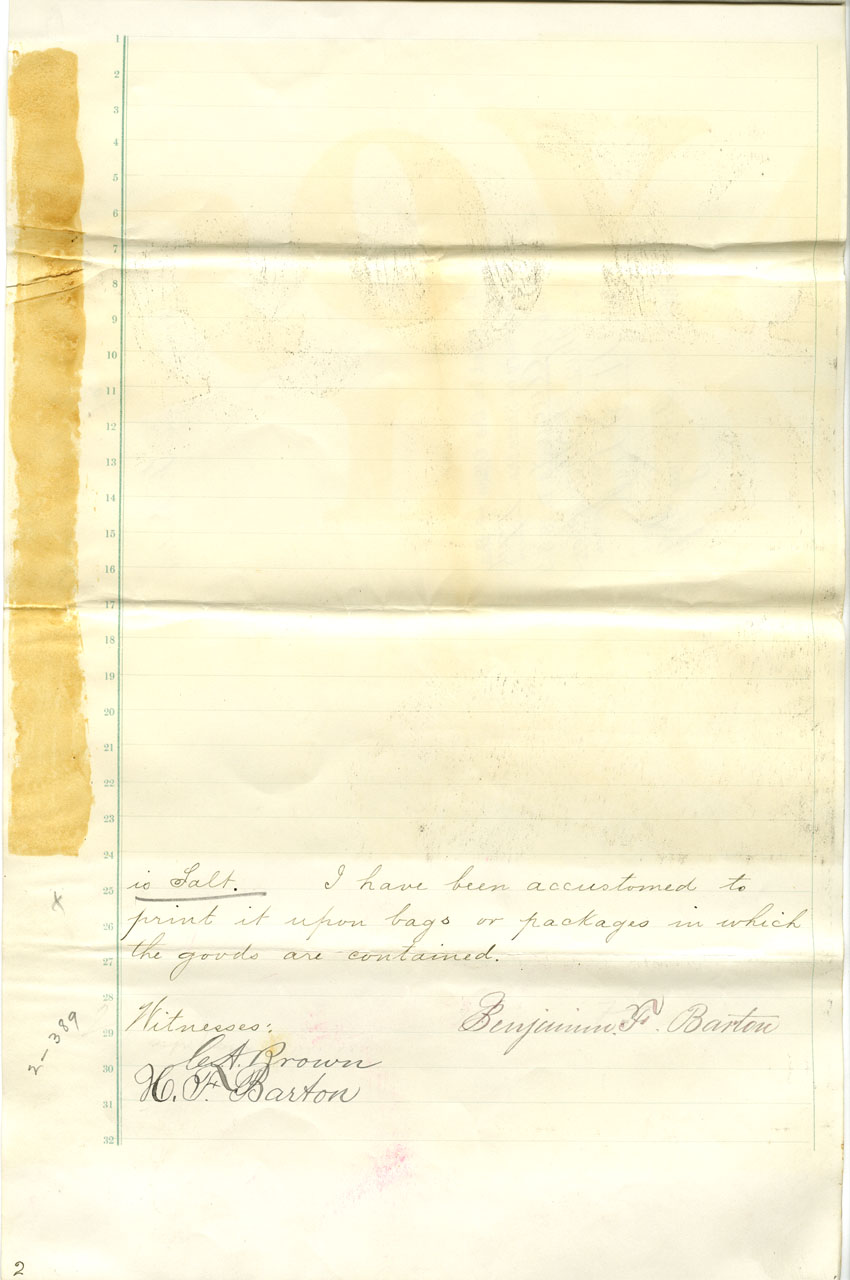 1
2
3
4
5
6
7
8
9
10
11
12
13
14
15
16
17
18
19
20
21
22
23
24
25 is Salt. I have been accustomed to
26 print it upon bags or packages in which
27 the goods are contained.
28
29 Witnesses: Benjamin F. Barton
30 C. A. Brown
31 H. F. Barton
32
x
2-389
2